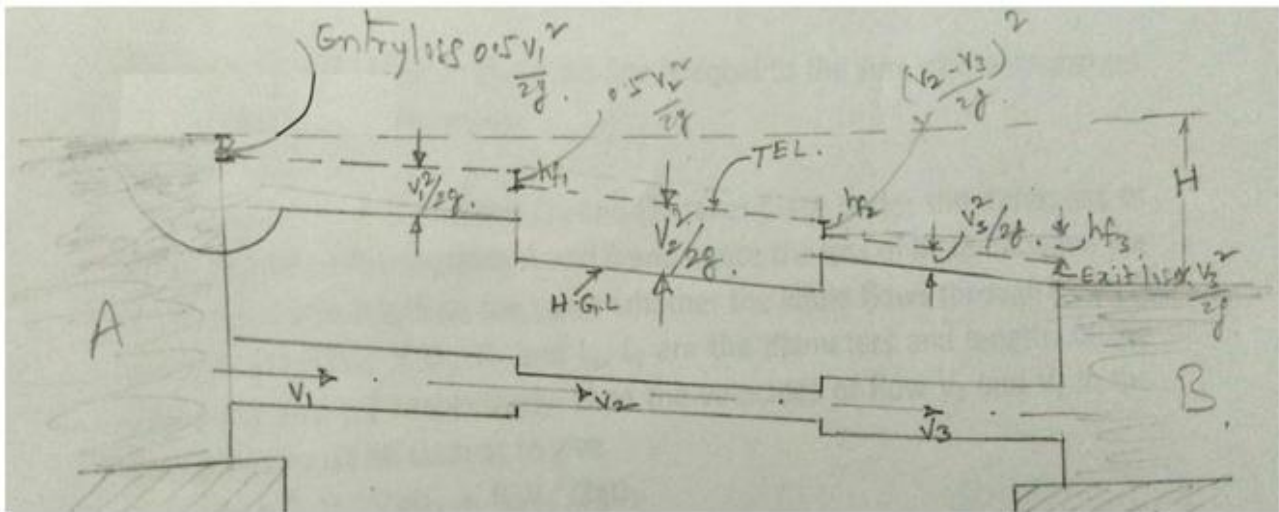 Entry loss 0.5 V₁²/2g.
0.5 V₂²/2g
(V₂-V₃)²/2g
TEL.
H
hf₁
V₁²/2g.
V₂²/2g.
hf₂
V₃²/2g.
hf₃
Exit loss V₃²/2g
H.G.L
A
B
V₁
V₂
V₃